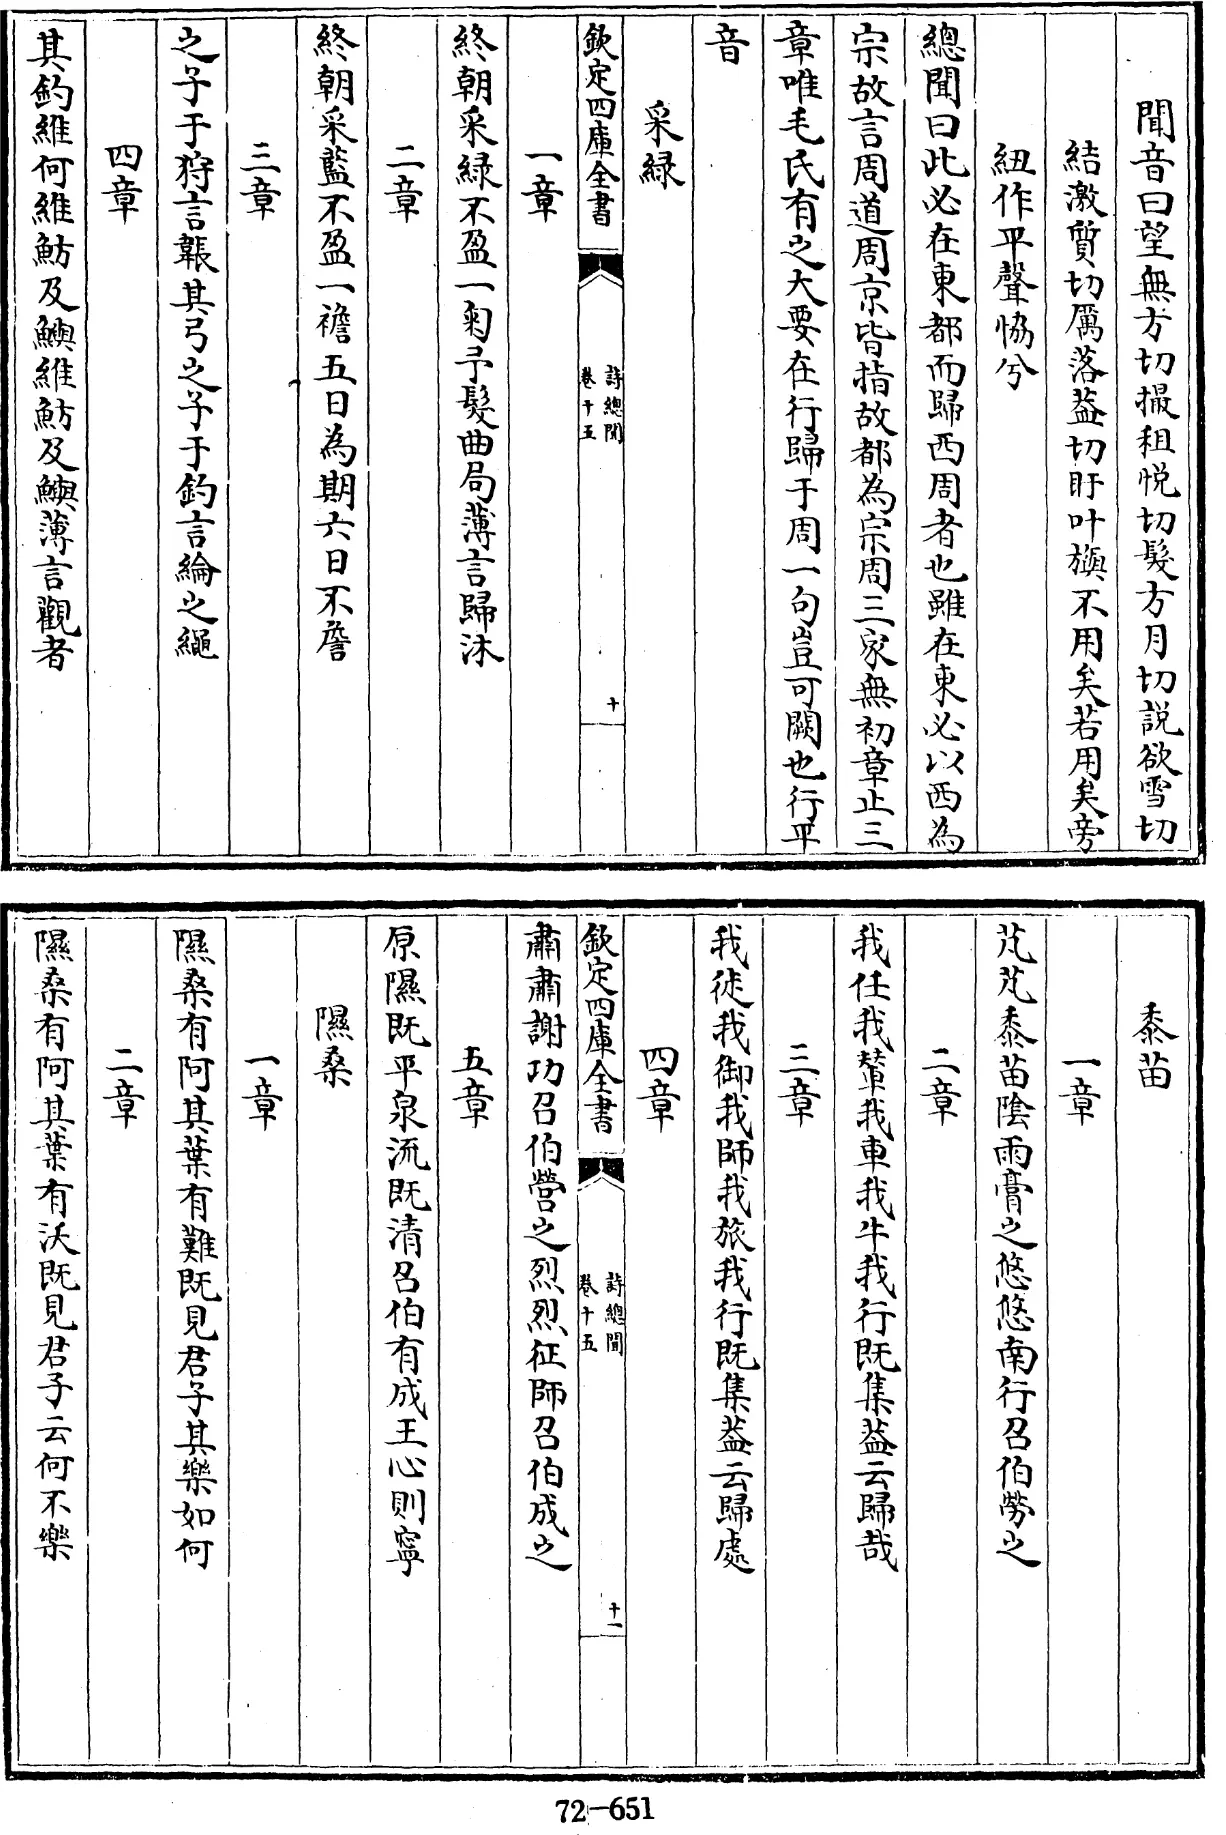 聞音曰望無方切撮租悅切髮方月切說欲雪切
結激質切厲落蓋切盱叶旟不用矣若用矣旁
紐作平聲恊兮
總聞曰此必在東都而歸西周者也雖在東必以西為
宗故言周道周京皆指故都為宗周三家無初章止三
章唯毛氏有之大要在行歸于周一句豈可闕也行平
音
采綠
欽定四庫全書
詩總聞
卷十五
十
一章
終朝采綠不盈一匊予髮曲局薄言歸沐
二章
終朝采藍不盈一襜五日為期六日不詹
三章
之子于狩言韔其弓之子于釣言綸之繩
四章
其釣維何維魴及鱮維魴及鱮薄言觀者
黍苗
一章
芃芃黍苗陰雨膏之悠悠南行召伯勞之
二章
我任我輦我車我牛我行既集蓋云歸哉
三章
我徒我御我師我旅我行既集蓋云歸處
四章
欽定四庫全書
詩總聞
卷十五
十一
肅肅謝功召伯營之烈烈征師召伯成之
五章
原隰既平泉流既清召伯有成王心則寧
隰桑
一章
隰桑有阿其葉有難既見君子其樂如何
二章
隰桑有阿其葉有沃既見君子云何不樂
72-651